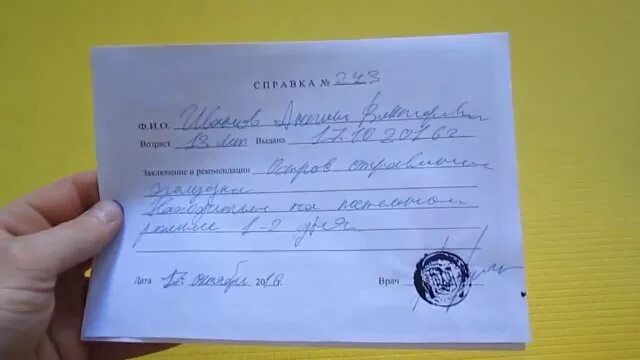 СПРАВКА № 243
Ф.И.О. Иванов Викторович
Возраст 13 лет Выдана 17.10.2016г
Заключение и рекомендации Острое отравление
желудка
Находиться на постельном
режиме 1-2 дня.
Дата 17 октябрь 2016г. Врач